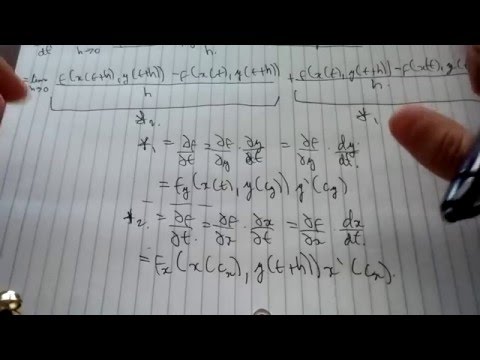 dt h→0 h
= lim h→0 f(x(t+h), y(t+h)) - f(x(t), y(t+h)) / h + f(x(t), y(t+h)) - f(x(t), y( / h
*₂ *₁
*₁ = ∂f/∂t = ∂f/∂y · ∂y/∂t = ∂f/∂y · dy/dt.
= f_y(x(t), y(c_y)) y'(c_y)
*₂ = ∂f/∂t = ∂f/∂x · ∂x/∂t = ∂f/∂x · dx/dt.
= f_x(x(c_x), y(t+h)) x'(c_x).